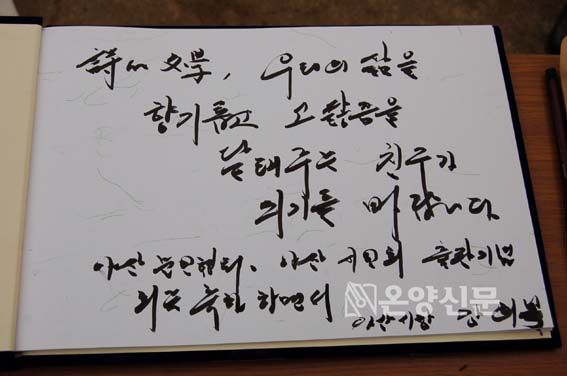 詩와 文學, 우리의 삶을
향기롭고
주는 친구가
되기를 바랍니다.
아산 문인협회, 아산 시인회 출판기념
회를 축하 하면서
아산시장 강희복
온양신문